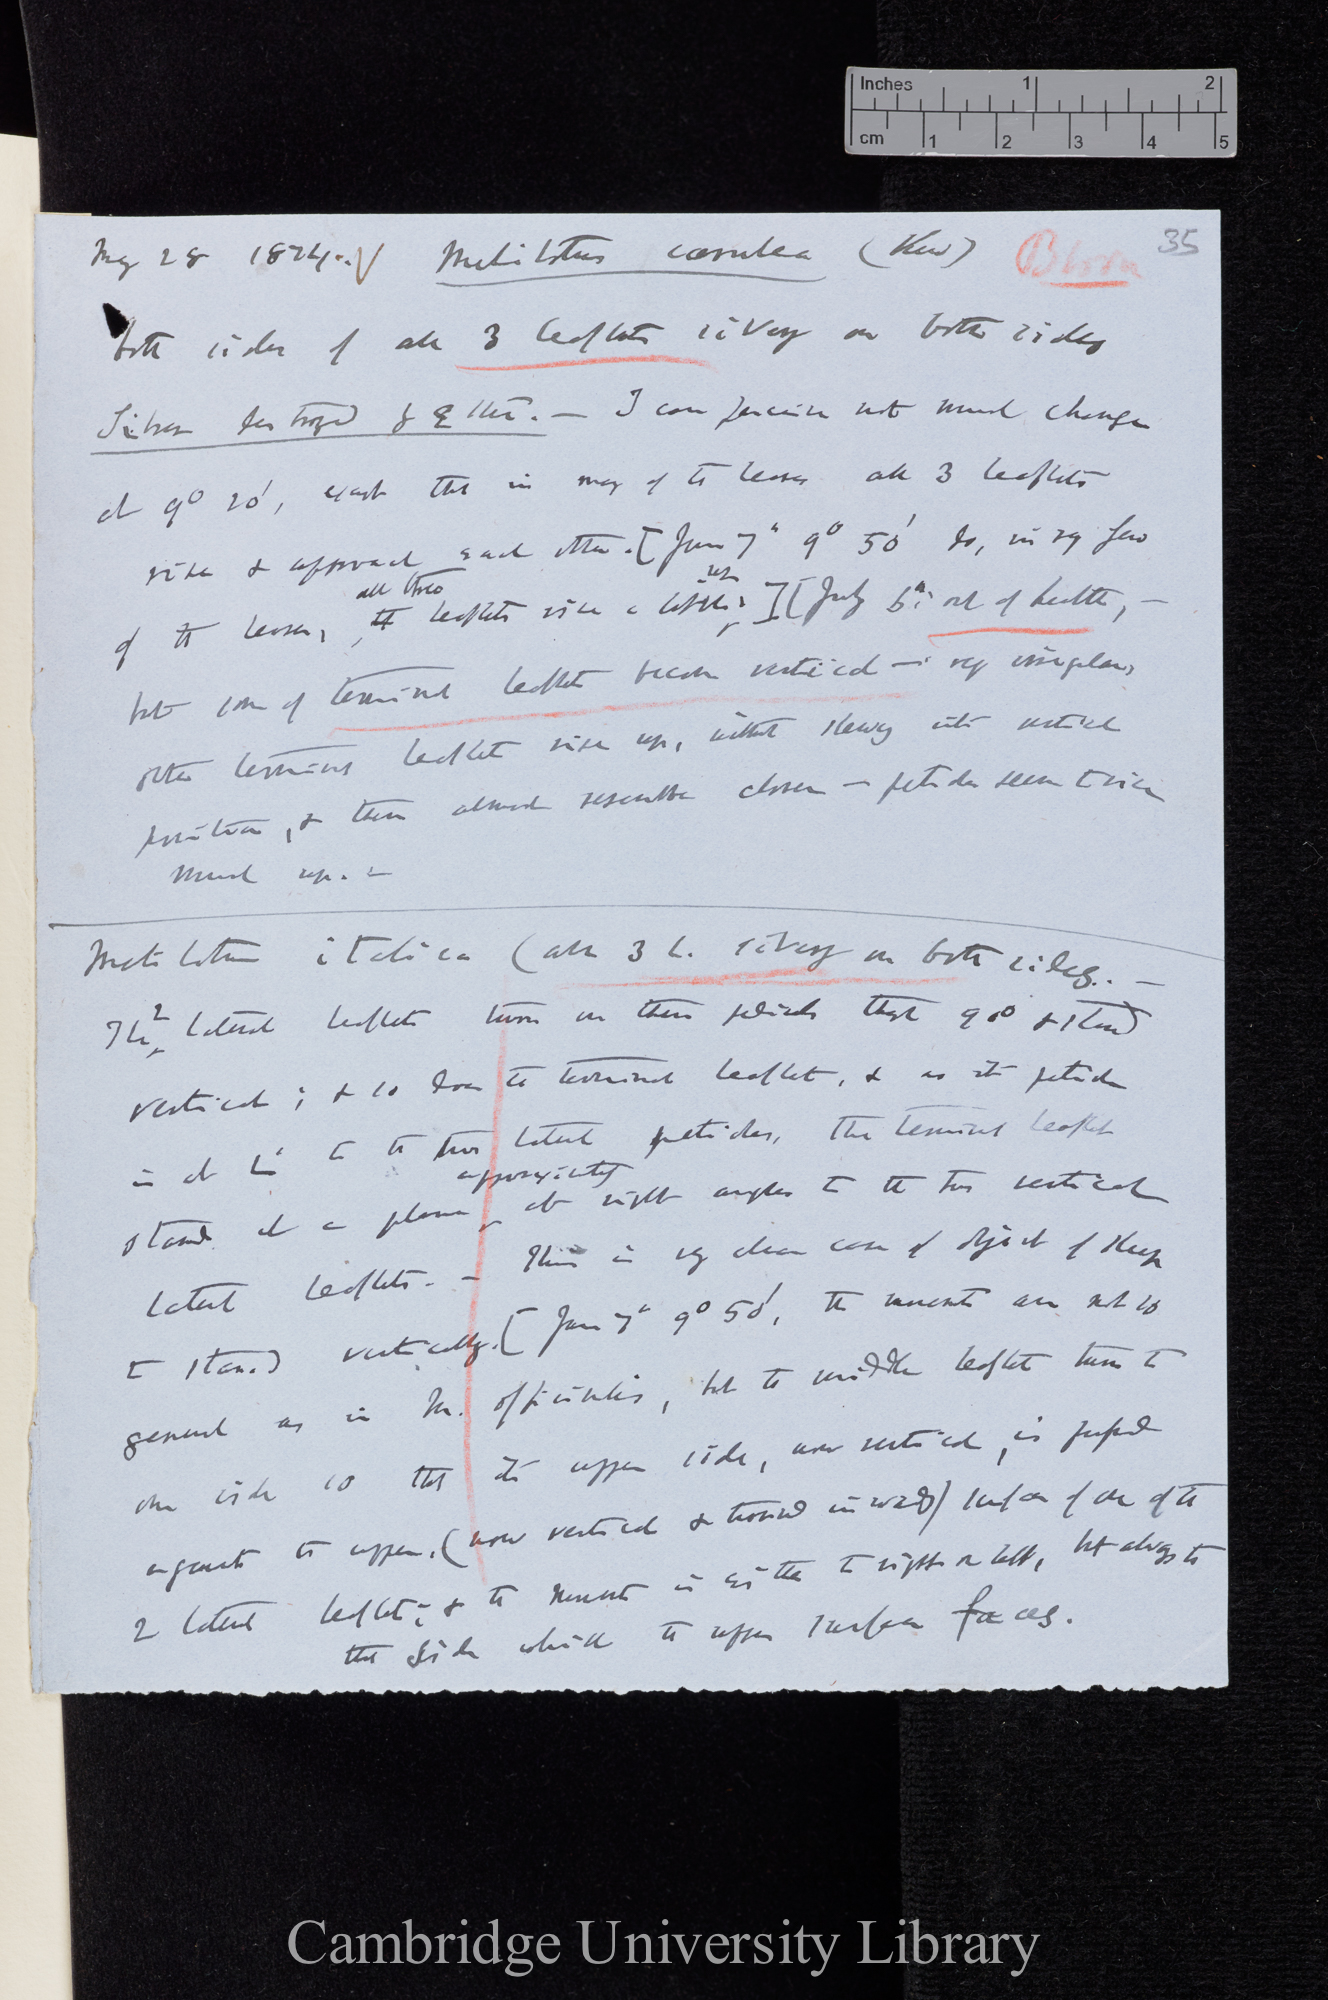 Inches 1 2
cm 1 2 3 4 5
May 28 1874. Melilotus cœrulea (Kew) Bloom 35
both sides of all 3 leaflets silvery on both sides
Silver destroyed by Ether. — I can perceive not much change
at 9° 20', except that in many of the leaves all 3 leaflets
rise & approach each other. [June 7" 9° 50' do, in vy few
all three up
of the leaves, the leaflets rise a little ] [July 6th out of health, —
but some of terminal leaflets become vertical — vy irregular,
other terminal leaflets rise up, without skewing into vertical
position, & then almost resemble clover — petioles seem to rise
much up. —
Melilotus italica (all 3 L. silvery on both sides. —
The 2 lateral leaflets turn on their petioles through 90° & stand
vertical; & so does the terminal leaflet, & as its petiole
is at L to the two lateral petioles, the terminal leaflet
approximately
stands at a plane at right angles to the two vertical
lateral leaflets. — This is vy clear case of object of sleep
to stand vertically. [June 7" 9° 50', the movements are not so
general as in M. officinalis, but the middle leaflet turns to
one side so that its upper side, now vertical, is pressed
against the upper (now vertical & turned inwards) surface of one of the
2 lateral leaflets; & the movement is either to right or left, but always to
the side which the upper surface faces.
Cambridge University Library